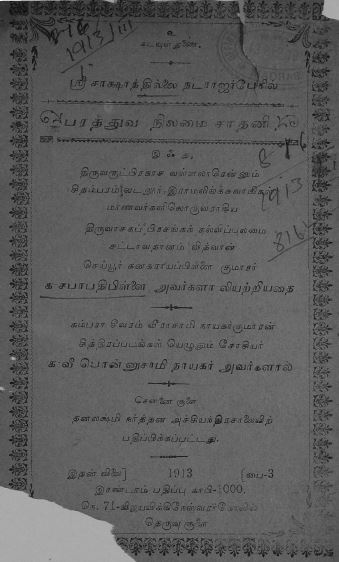 உ
கடவுள் துணை.
ஸ்ரீ சாக்ஷாத்தில்லை நடராஜர்பேரில்
பரத்துவ நிலமை சாதனி
இஃது,
திருவருட்பிரகாச வள்ளலாரென்னும்
சிதம்பரம்
மாணவர்களிலொருவராகிய
திருவாசகப் பிரசங்கர்
சட்டாவதானம் வித்வான்
செய்யூர் கனகராயப்பிள்ளை குமாரர்
க-சபாபதிபிள்ளை அவர்களா லியற்றியதை
வீராசாமி நாயகர்குமாரன்
சித்திரப்படங்கள் யெழுதும் சோதியர்
க. வீ பொன்னுசாமி நாயகர் அவர்களால்
சென்னை சூளை
தனலக்ஷ்மி நர்த்தன அச்சியந்திரசாலையிற்
பதிப்பிக்கப்பட்டது.
இதன் விலை] 1913 [பை-3
இரண்டாம் பதிப்பு காபி-1000.
நெ. 71-விஜயவிக்கினேஸ்வரர்கோவில்
தெருவு சூளை
1913
816